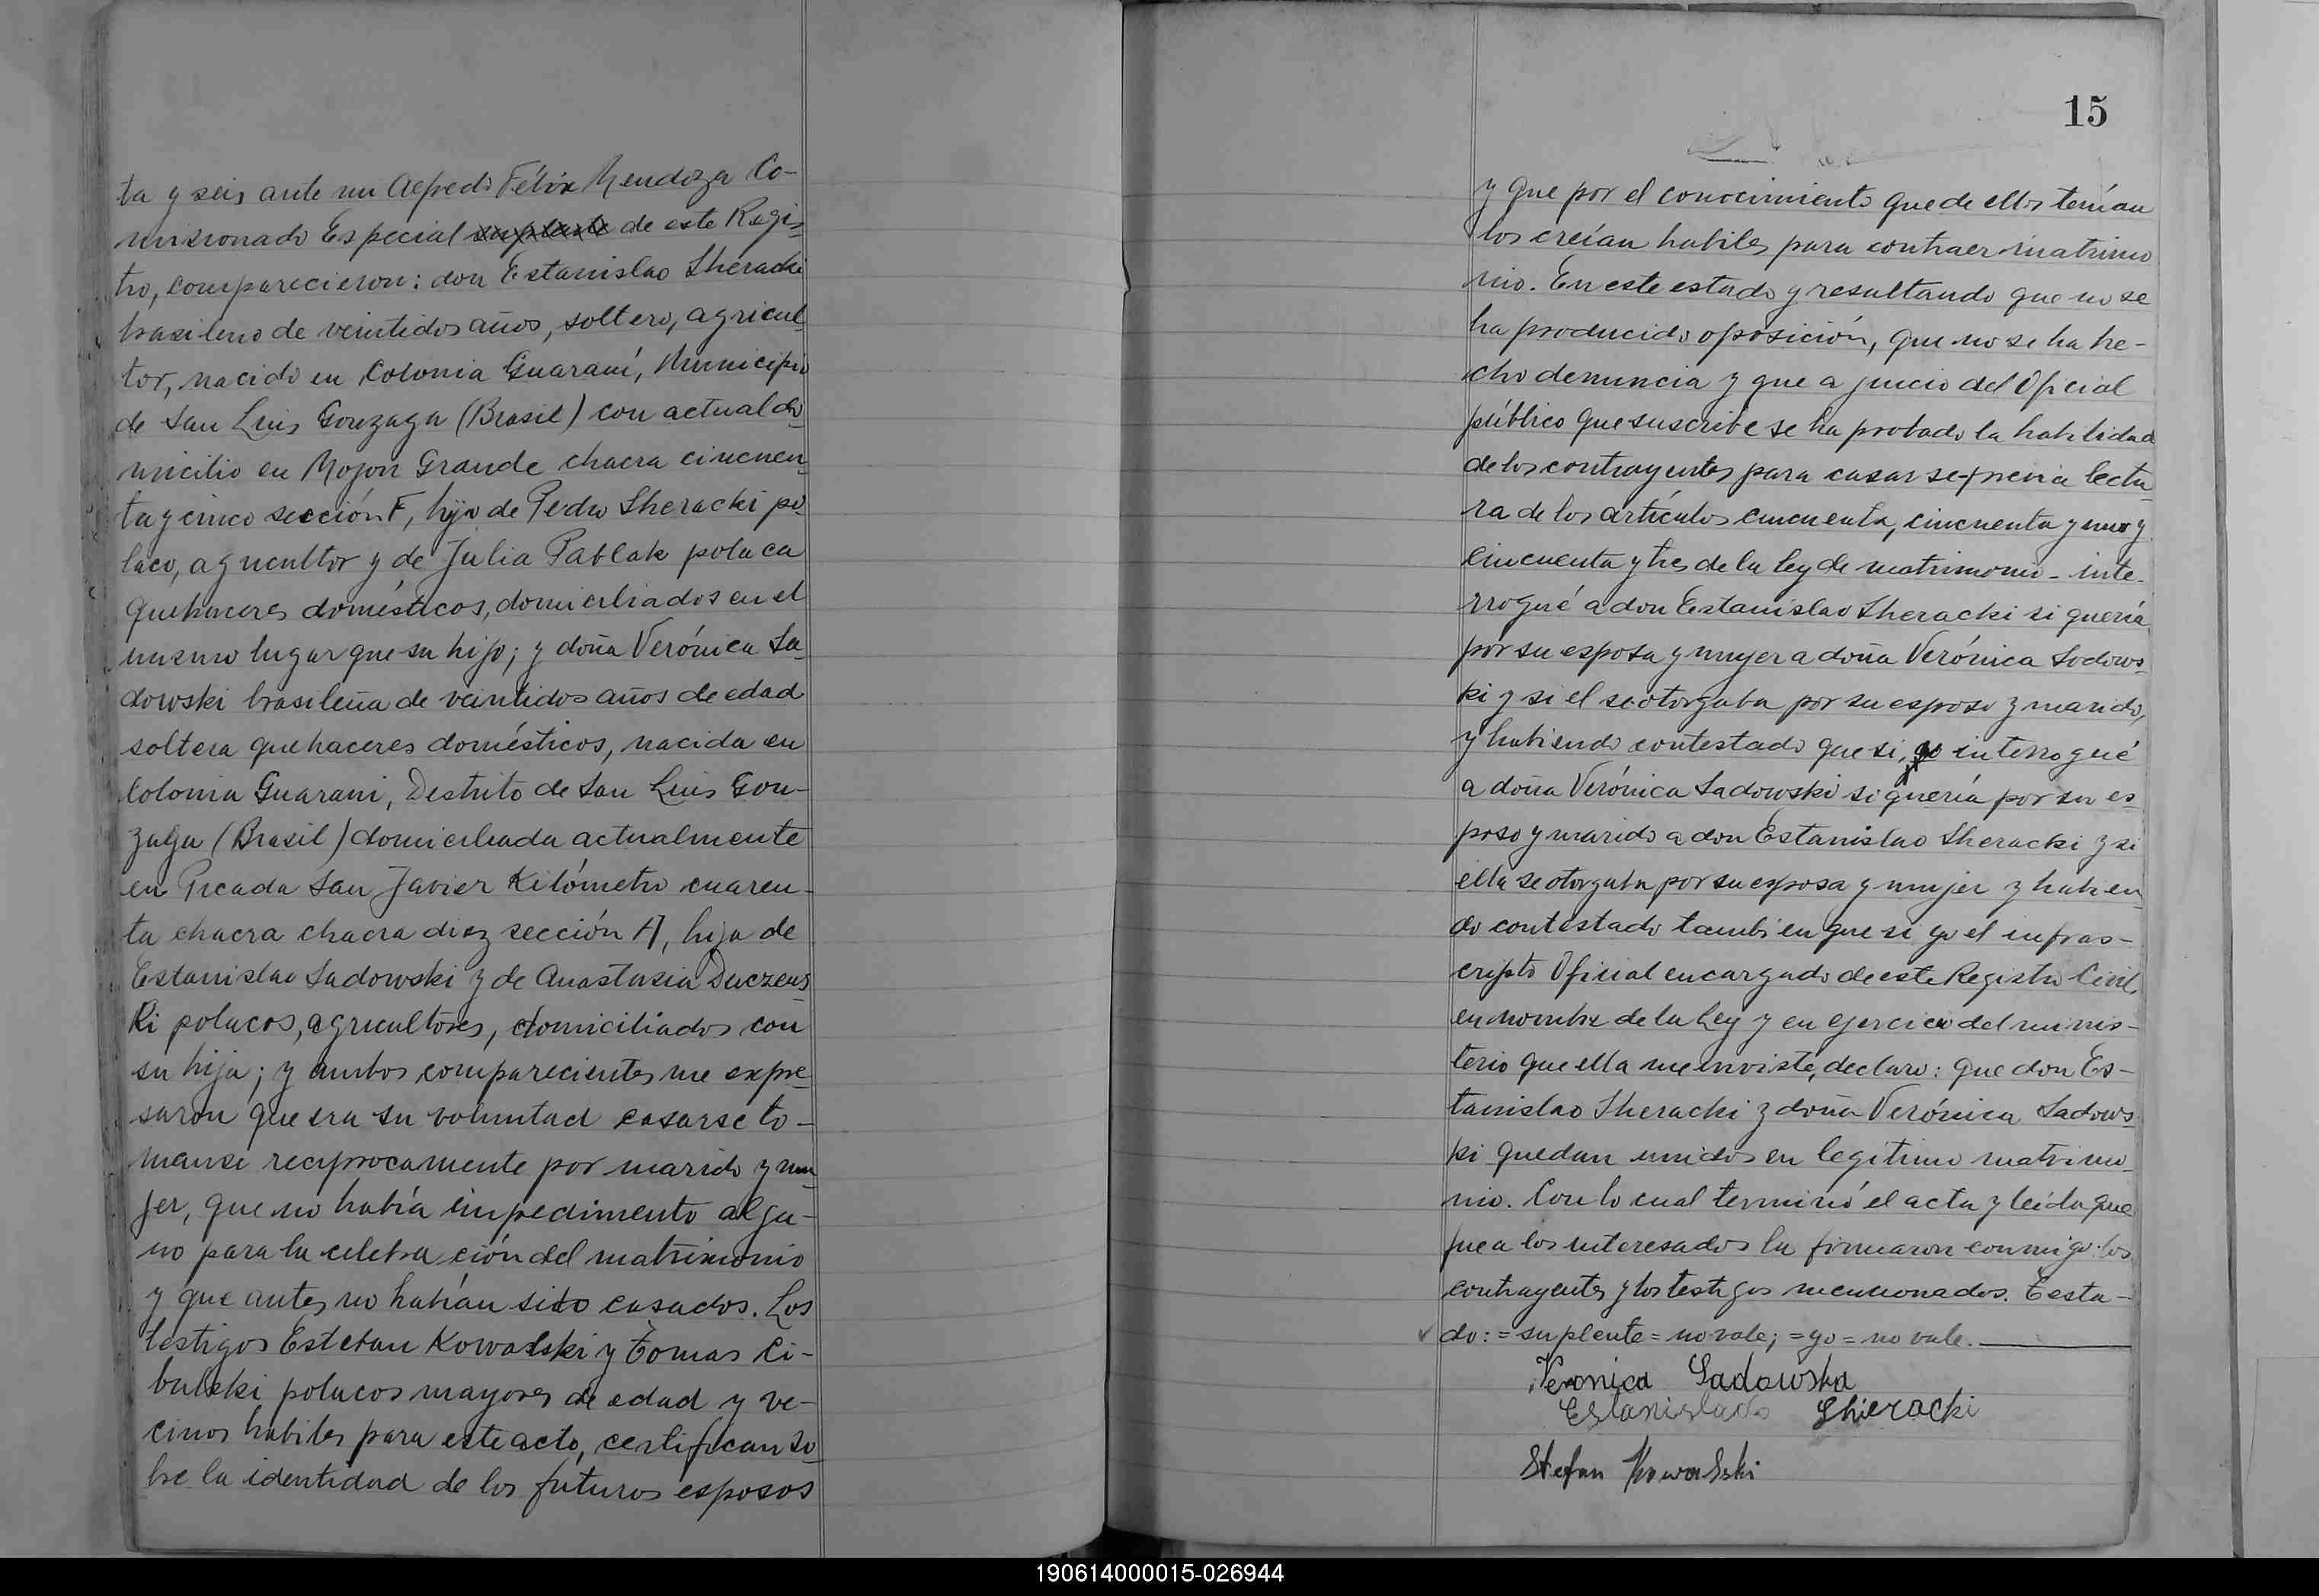 ta y seis ante mi Alfredo Félix Mendoza Co-
misionado Especial suplente de este Regis-
tro, comparecieron: don Estanislao Sheracki
brasileno de veintidos años, soltero, agricul-
tor, nacido en Colonia Guaraní, Municipio
de San Luis Gonzaga (Brasil) con actual do-
micilio en Mojon Grande chacra cincuen-
ta y cinco sección F, hijo de Pedro Sheracki po-
laco, agricultor y de Julia Pablak polaca
quehaceres domésticos, domiciliados en el
mismo lugar que su hijo; y doña Verónica Sa-
dowski brasileña de veintidos años de edad
soltera quehaceres domésticos, nacida en
Colonia Guarani, Destrito de San Luis Gon-
zaga (Brasil) domiciliada actualmente
en Picada San Javier Kilómetro cuaren-
ta chacra chacra diez sección A, hija de
Estanislao Sadowski y de Anastasia Duczens-
ki polacos, agricultores, domiciliados con
su hija; y ambos comparecientes me expre-
saron que era su voluntad casarse to-
manse reciprocamente por marido y mu-
jer, que no había impedimento algu-
no para la celebra ción del matrimonio
y que antes no habían sido casados. Los
testigos Esteban Kowalski y Tomas Ci-
buleki polacos mayores de edad y ve-
cinos habiles para este acto, certifican so-
bre la identidad de los futuros esposos
15
y que por el conocimiento que de ellos tenían
los creían habiles para contraer matrimo
nio. En este estado y resultando que no se
ha producido oposición, que no se ha he-
cho denuncia y que a juicio del Oficial
público que suscribe se ha probado la habilidad
de los contrayentes para casar se previa lectu-
ra de los artículos cincuenta, cincuenta y uno y
cincuenta y tres de la ley de matrimonio - inte-
rrogué a don Estanislao Sheracki si quería
por su esposa y mujer a doña Verónica Sodows-
ki y si el se otorgaba por su esposo y marido,
y habiendo contestado que si, yo interrogué
a doña Verónica Sadowski si quería por su es-
poso y marido a don Estanislao Sheracki y si
ella se otorgaba por su esposa y mujer y habien-
do contestado tambien que si yo él infras-
cripto Oficial encargado de este Registro Civil,
en nombre de la Ley y en ejercicio del minis-
terio que ella me enviste, declaro: que don Es-
tanislao Sheracki y doña Verónica Sadows-
ki quedan unidos en legítimo matrimo-
nio. Con lo cual terminó el acta y leída que
fue a los interesados la firmaron conmigo: los
contrayentes y los testigos mencionados. Testa-
do: = suplente = no vale; = yo = no vale.
Veronica Sadowska
Estanislado Shieracki
Stefan Kowalski
190614000015-026944